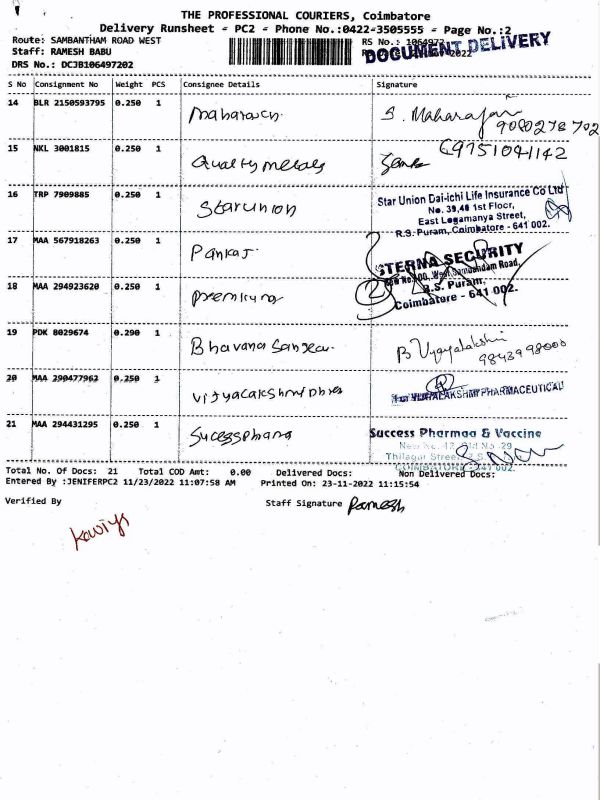 THE PROFESSIONAL COURIERS, Coimbatore
Delivery Runsheet - PC2 - Phone No.:0422-3505555 - Page No.:2
Route: SAMBANTHAM ROAD WEST
RS No.: 1064972
DOCUMENT DELIVERY
Staff: RAMESH BABU
2022
DRS No.: DCJB106497202
S No Consignment No Weight PCS Consignee Details Signature
14 BLR 2150593795 0.250 1 Maharach S. Maharajan
9080278702
15 NKL 3001815 0.250 1 Quality metals 6975104142
16 TRP 7909885 0.250 1 Starunion Star Union Dai-ichi Life Insurance Co Ltd
No. 39,40 1st Floor,
East Logamanya Street,
R.S. Puram, Coimbatore - 641 002.
17 MAA 567918263 0.250 1 Pankaj STERNA SECURITY
West Sambandam Road,
18 MAA 294923620 0.250 1 Premkumar R.S. Puram,
Coimbatore - 641 002.
19 PDK 8029674 0.290 1 Bhavana B Vijayalakshmi
9843998000
20 MAA 290477962 0.250 1 For VIJAYALAKSHMI PHARMACEUTICAL
21 MAA 294431295 0.250 1 Sucesspharma Success Pharmaa & Vaccine
Thilagar Street
COIMBATORE - 641 002.
Total No. Of Docs: 21 Total COD Amt: 0.00 Delivered Docs: Non Delivered Docs:
Entered By :JENIFERPC2 11/23/2022 11:07:58 AM Printed On: 23-11-2022 11:15:54
Verified By Staff Signature Ramesh
Kaviya